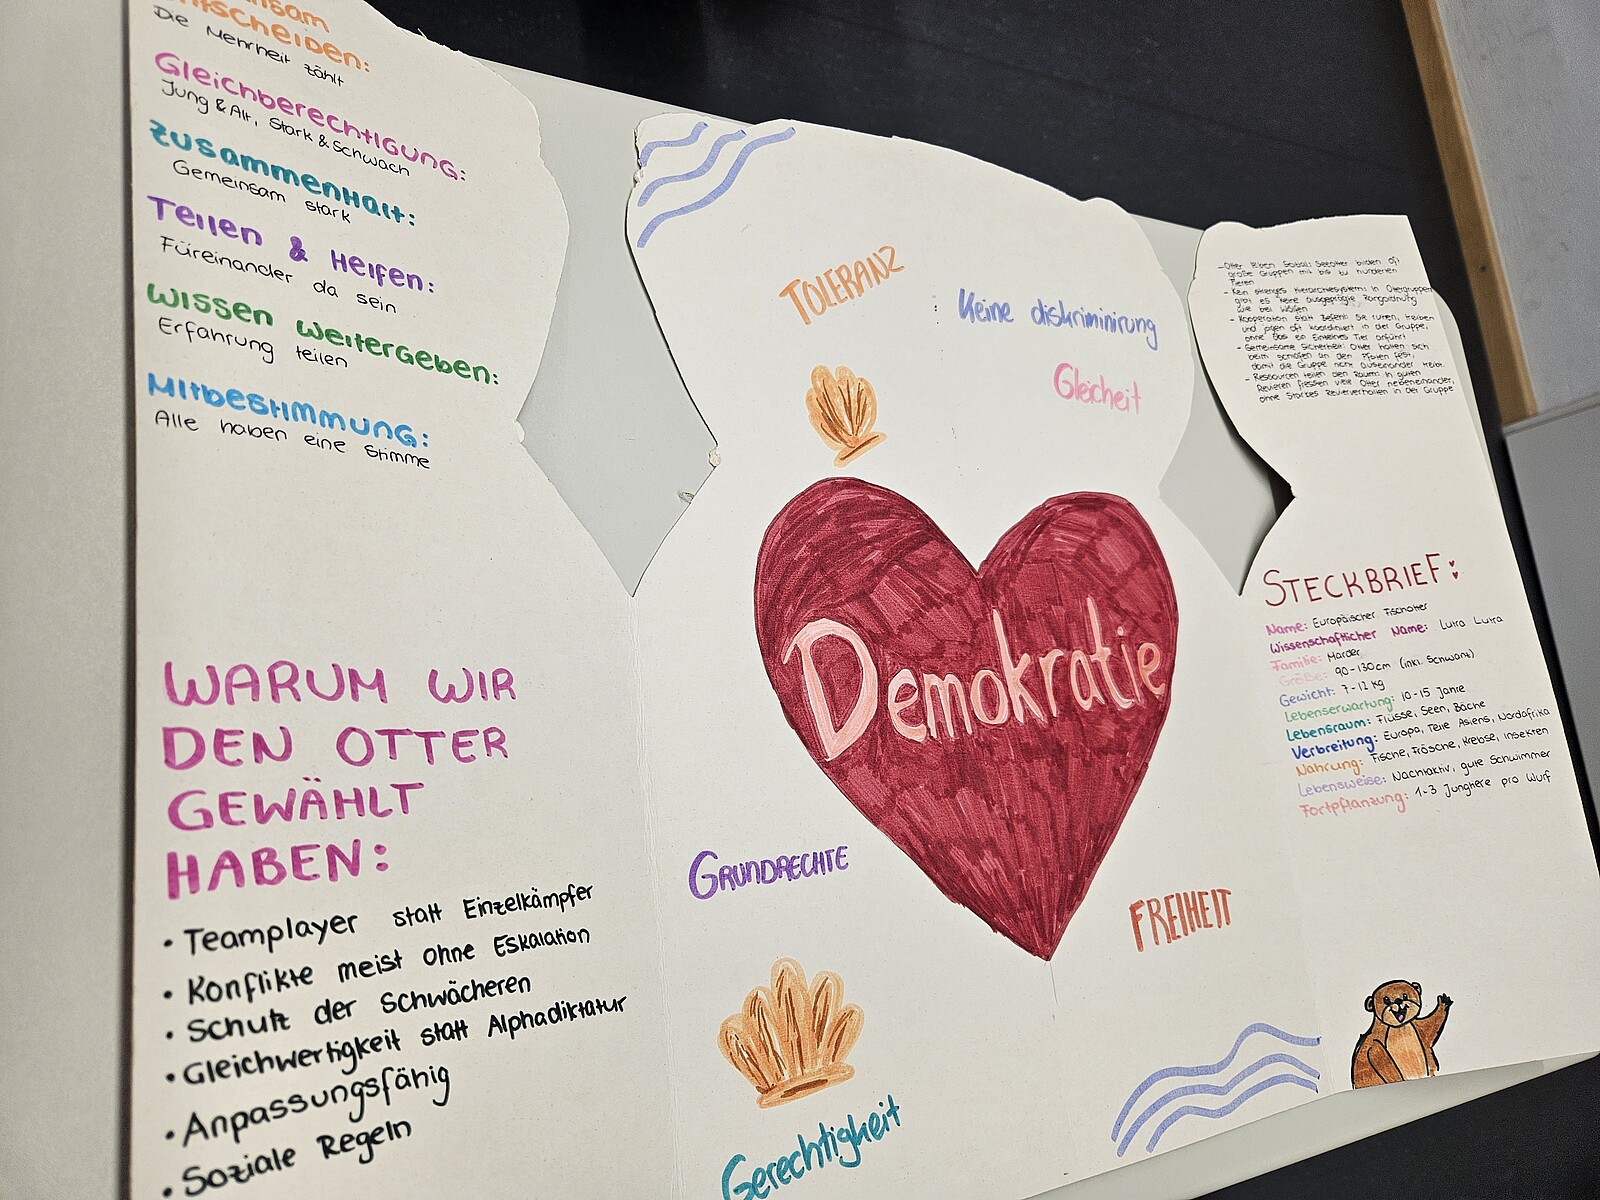 Die Mehrheit zählt
Gleichberechtigung:
Jung & Alt, Stark & Schwach
Zusammenhalt:
Gemeinsam stark
Teilen & Helfen:
Füreinander da sein
Wissen weitergeben:
Erfahrung teilen
Mitbestimmung:
Alle haben eine Stimme
WARUM WIR
DEN OTTER
GEWÄHLT
HABEN:
• Teamplayer statt Einzelkämpfer
• Konflikte meist ohne Eskalation
• Schutz der Schwächeren
• Gleichwertigkeit statt Alphadiktatur
• Anpassungsfähig
• Soziale Regeln
TOLERANZ
Keine diskriminirung
Gleicheit
Demokratie
GRUNDRECHTE
FREIHEIT
Gerechtigkeit
große Gruppen mit bis zu hunderten
Tieren
- Kein strenges Hierarchiesystem: In Ottergruppen
gibt es keine ausgeprägte Rangordnung
wie bei Wölfen
- Kooperation statt Befehl: Sie ruhen, treiben
und jagen oft koordiniert in der Gruppe,
ohne das ein Einzelnes Tier anführt
- Gemeinsame Sicherheit: Otter halten sich
beim schlafen an den Pfoten fest,
damit die Gruppe nicht auseinander treibt.
- Ressourcen teilen den Raum: In guten
Revieren fressen viele Otter nebeneinander,
ohne starkes Revierverhalten in der Gruppe
STECKBRIEF:
Name: Europäischer Fischotter
Wissenschaftlicher Name: Lutra Lutra
Familie: Marder
Größe: 90-130cm (inkl. Schwanz)
Gewicht: 7-12 kg
Lebenserwartung: 10-15 Jahre
Lebensraum: Flüsse, Seen, Bäche
Verbreitung: Europa, Teile Asiens, Nordafrika
Nahrung: Fische, Frösche, Krebse, Insekten
Lebensweise: Nachtaktiv, gute Schwimmer
Fortpflanzung: 1-3 Jungtiere pro Wurf